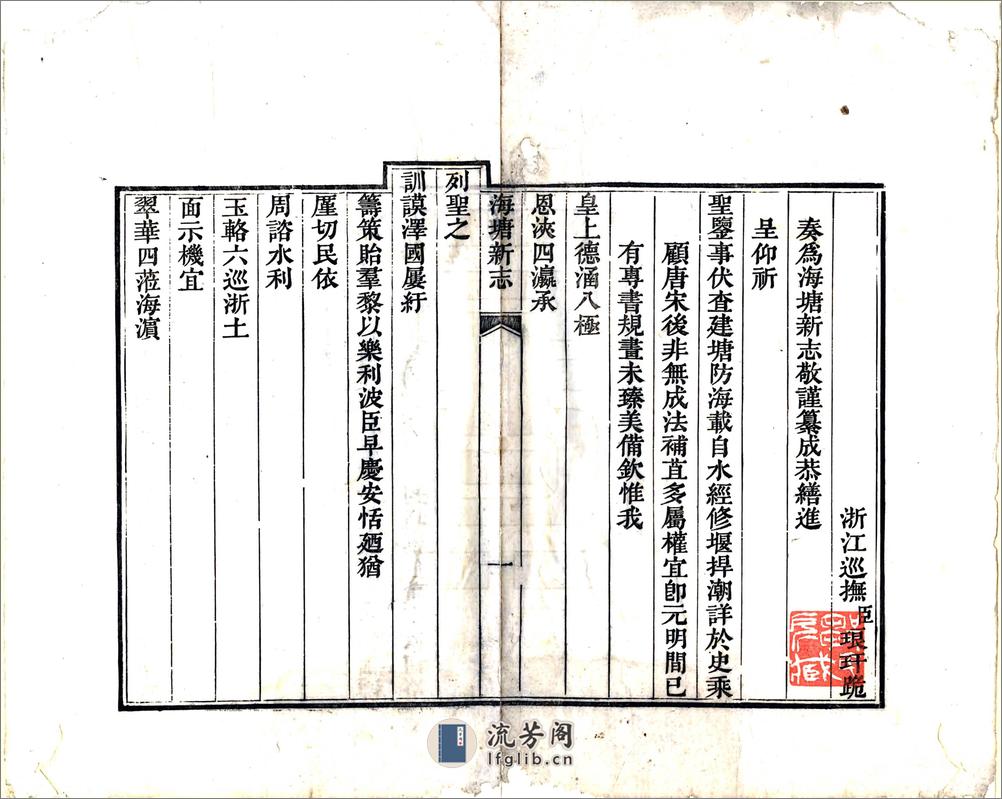 浙江巡撫臣琅玕跪
奏為海塘新志敬謹纂成恭繕進
呈仰祈
聖鑒事伏查建塘防海載自水經修堰捍潮詳於史乘
顧唐宋後非無成法補苴多屬權宜卽元明間已
有專書規畫未臻美備欽惟我
皇上德涵八極
恩浹四瀛承
海塘新志
一
列聖之
訓謨澤國屢紆
籌策貽羣黎以樂利波臣早慶安恬廼猶
厪切民依
周諮水利
玉輅六巡浙土
面示機宜
翠華四蒞海濵
流芳阁
lfglib.cn